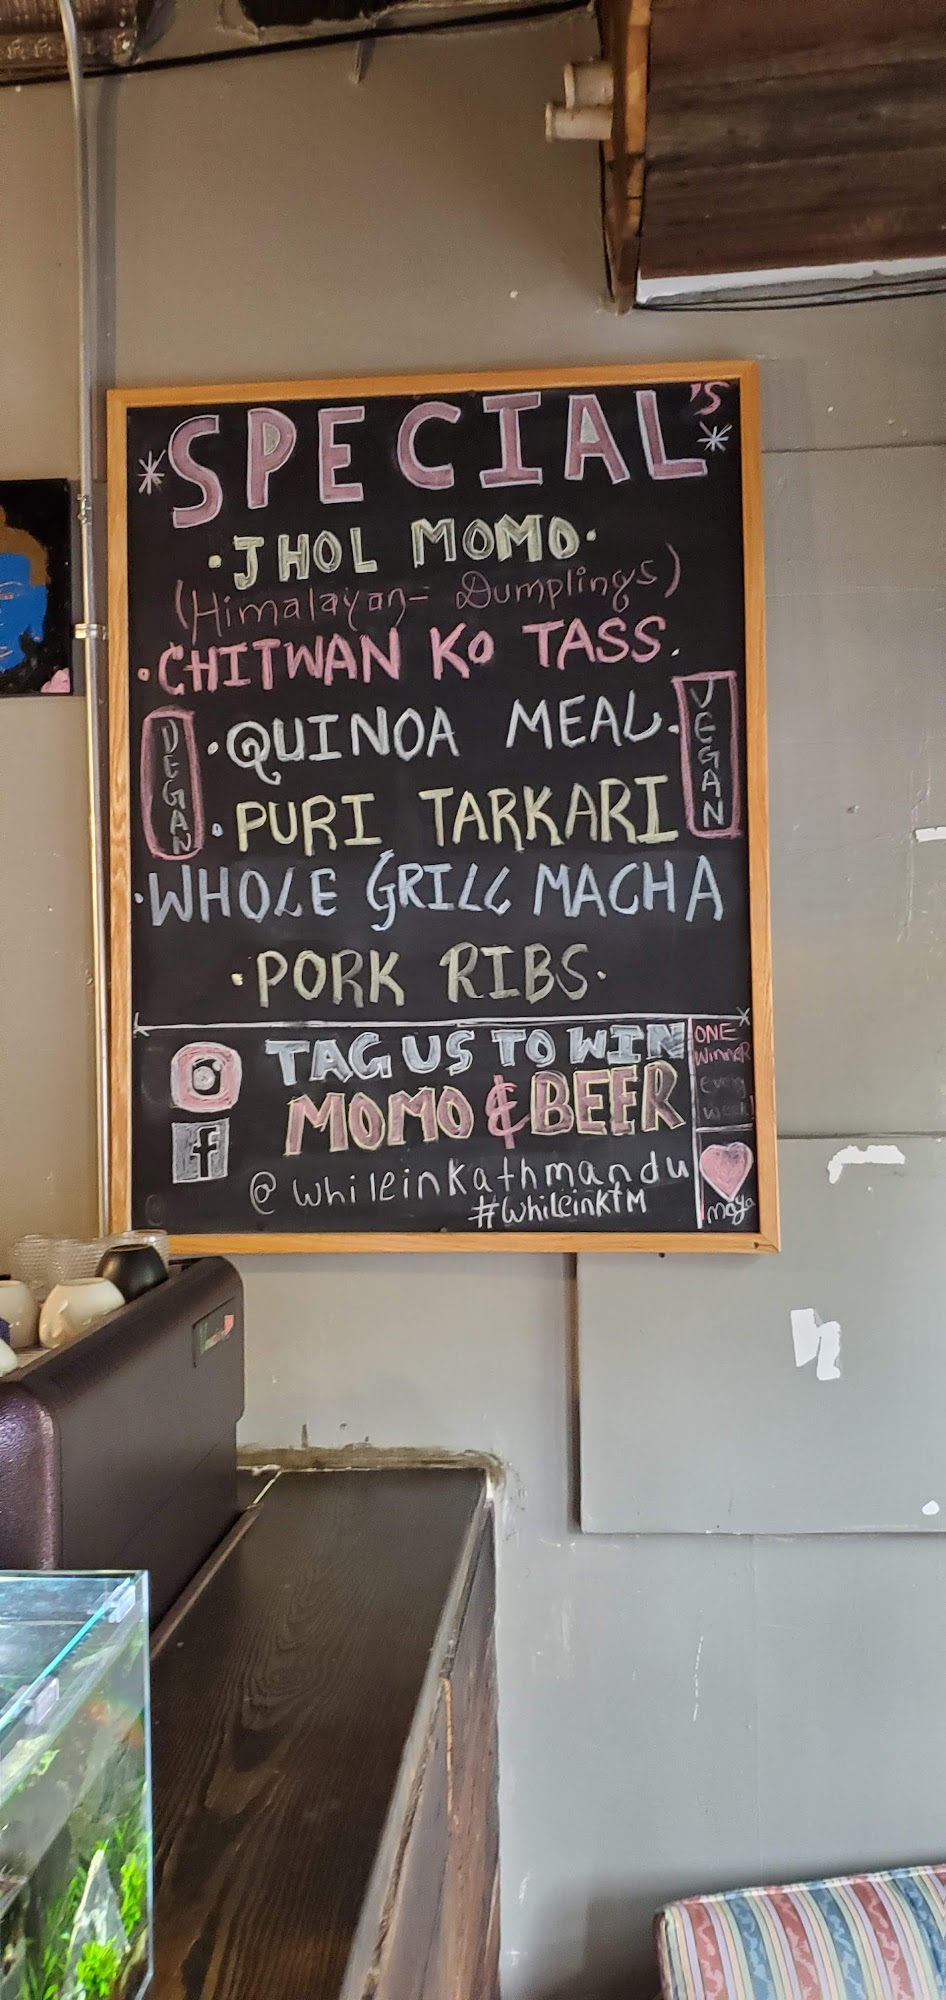 *SPECIAL'S*
·JHOL MOMO·
(Himalayan- Dumplings)
·CHITWAN KO TASS.
VEGAN
·QUINOA MEAL.
VEGAN
·PURI TARKARI
·WHOLE GRILL MACHA
·PORK RIBS·
TAG US TO WIN
MOMO & BEER
@whileinkathmandu
#whileinKTM
ONE
WinneR
every
week!
maya
f